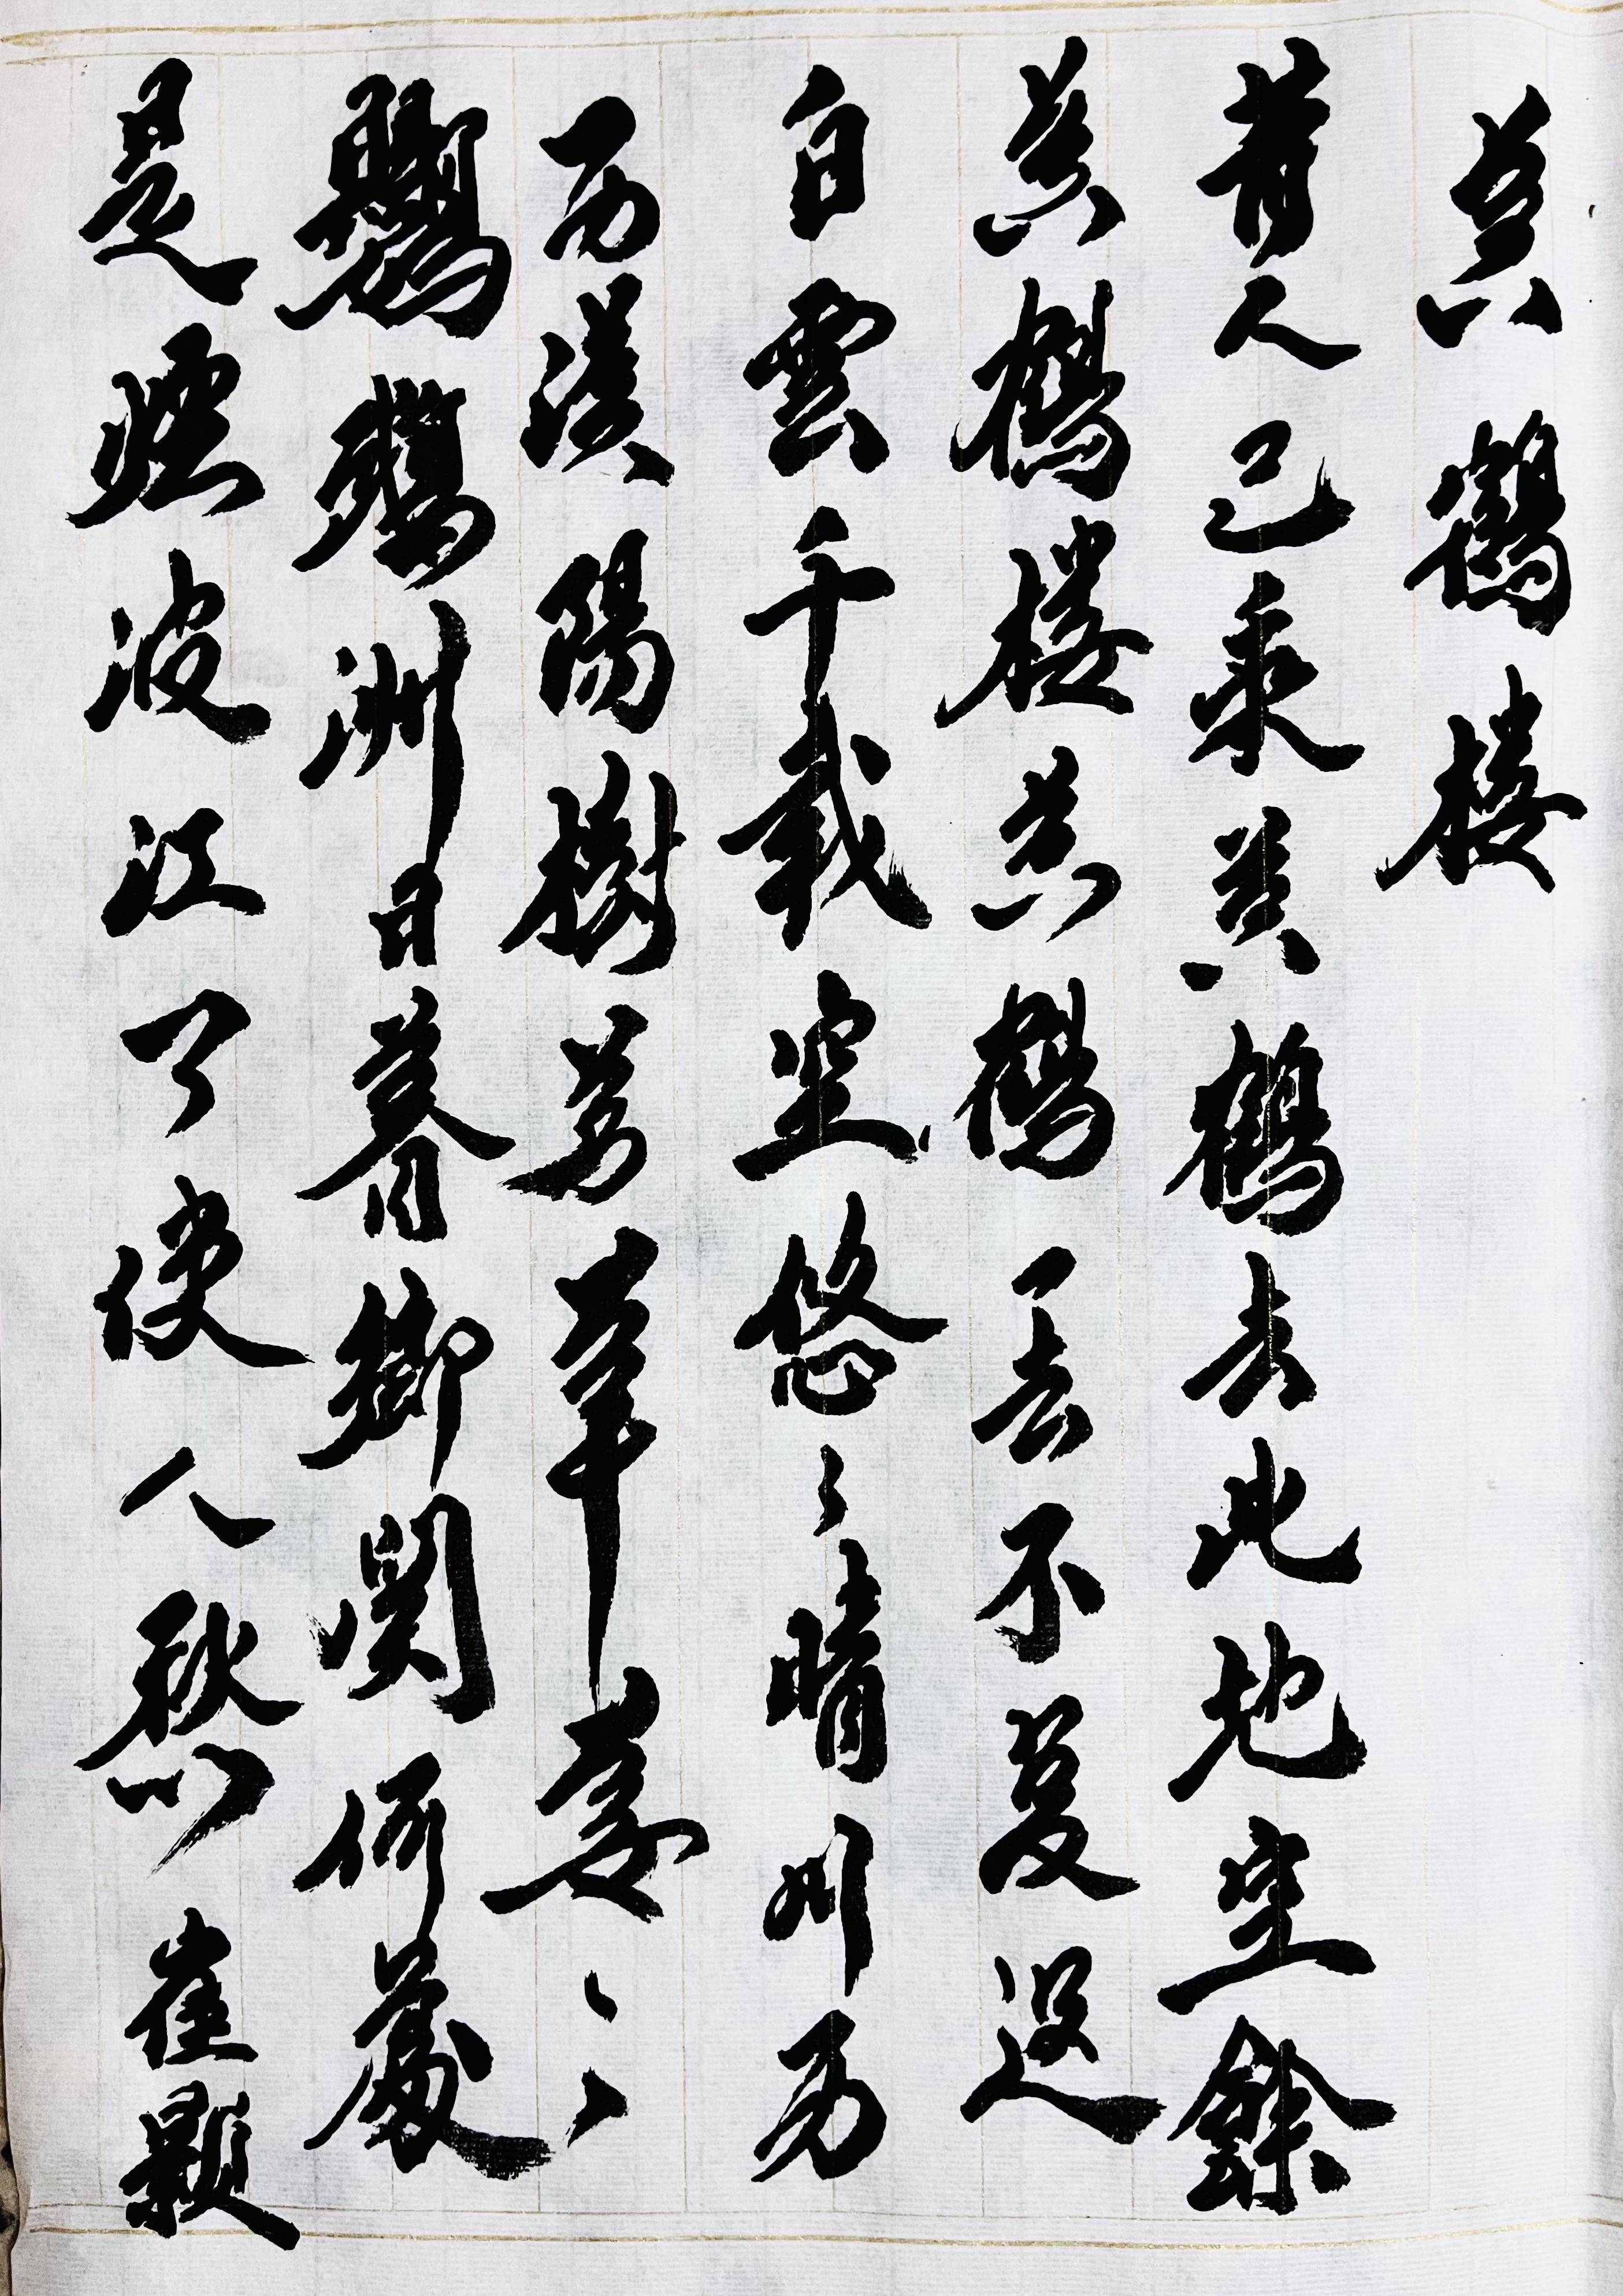 黄鶴樓
昔人已乘黄鶴去此地空餘
黄鶴樓黄鶴一去不復返
白雲千載空悠々晴川历
历漢陽樹芳草萋々
鸚鵡洲日暮鄉關何處
是煙波江了使人愁 崔顥